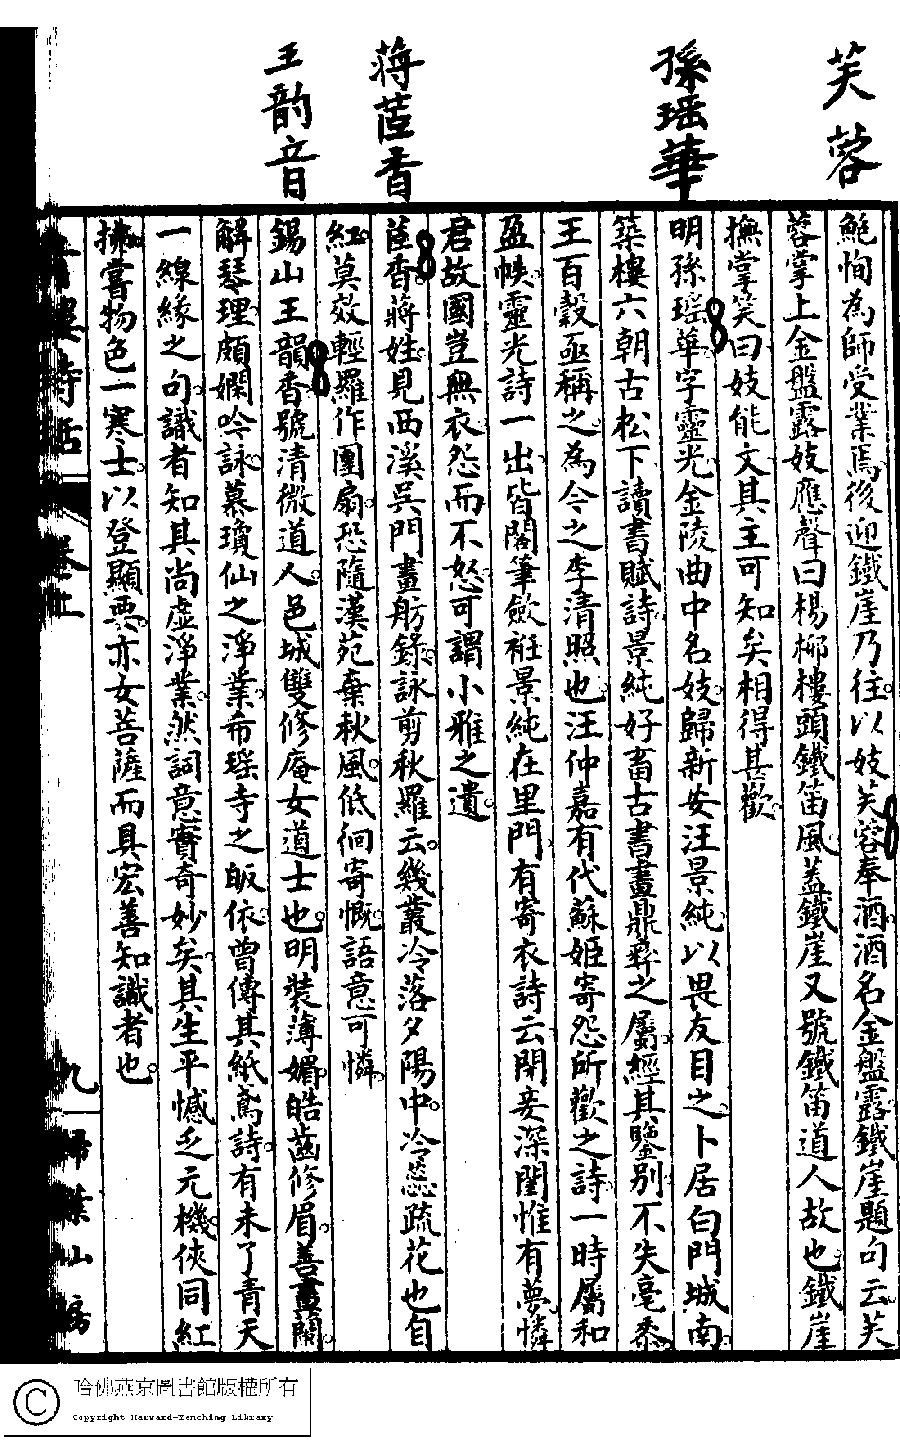 芙蓉
孫瑶華
蒋茝香
王韵音
鮑恂為師受業焉後迎鐵崖乃往以妓芙蓉奉酒酒名金盤露鐵崖題句云芙
蓉掌上金盤露妓應聲曰楊柳樓頭鐵笛風蓋鐵崖又號鐵笛道人故也鐵崖
撫掌笑曰妓能文其主可知矣相得甚歡
明孫瑶華字靈光金陵曲中名妓歸新安汪景純以畏友目之卜居白門城南
築樓六朝古松下讀書賦詩景純好畜古書畫鼎彛之屬經其鑒別不失毫黍
王百穀亟稱之為今之李清照也汪仲嘉有代蘇姬寄怨所歡之詩一時屬和
盈帙靈光詩一出皆閣筆斂袵景純在里門有寄衣詩云閉妾深閨惟有夢憐
君故國豈無衣怨而不怒可謂小雅之遺
茝香蔣姓見西溪吳門畫舫錄詠剪秋羅云幾叢冷落夕陽中冷蕊疏花也自
紅莫效輕羅作團扇恐隨漢苑棄秋風低徊寄慨語意可憐
錫山王韻香號清微道人邑城雙修庵女道士也明裝薄媚皓齒修眉善畫蘭
解琴理頗嫻吟詠慕瓊仙之淨業希瑶寺之皈依曾傳其紙鳶詩有未了青天
一線緣之句識者知其尚虛淨業然詞意實奇妙矣其生平憾乏元機俠同紅
拂嘗物色一寒士以登顯要亦女菩薩而具宏善知識者也
九
掃葉山房
哈佛燕京圖書館版權所有
Copyright Harvard-Yenching Library